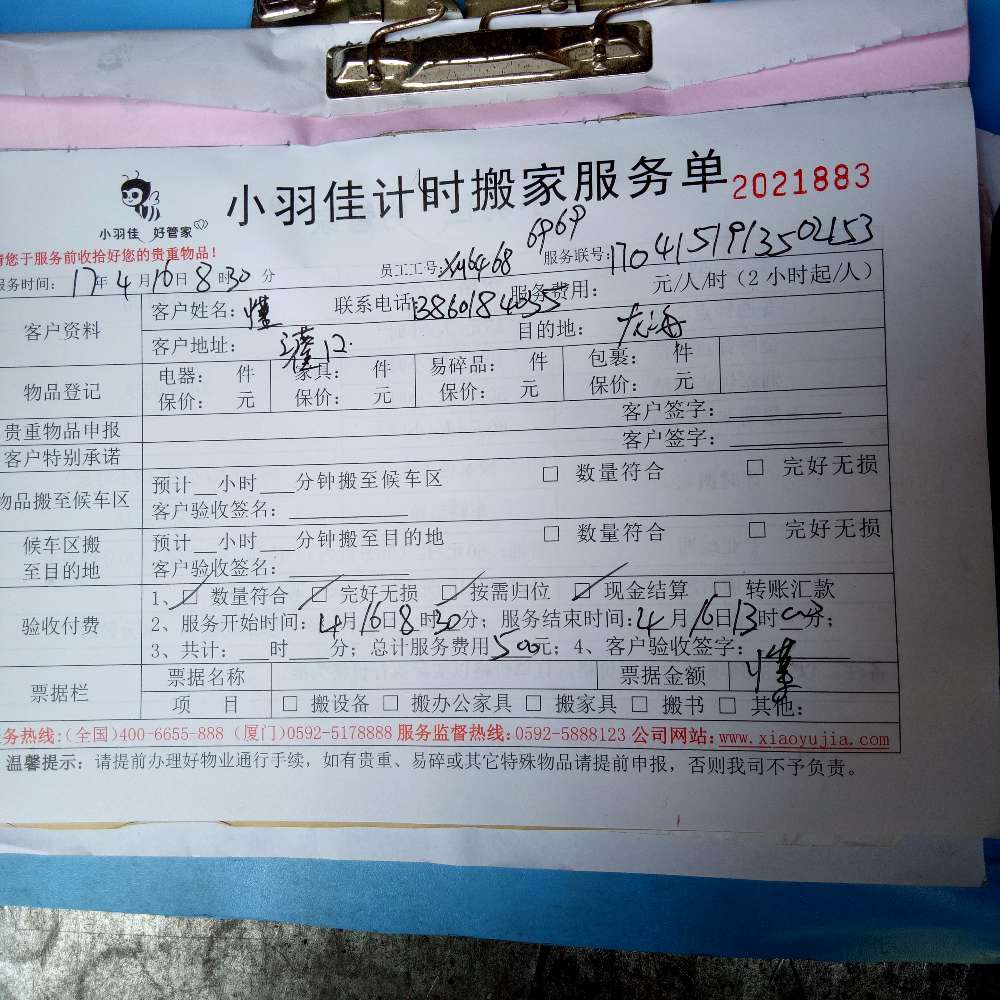 小羽佳 好管家
小羽佳计时搬家服务单 2021883
请您于服务前收拾好您的贵重物品！
服务时间： 17年4月16日8时30分 员工工号：xy6468 6969 服务联号：1704151913502153
客户资料 客户姓名： 联系电话：13860184055 服务费用： 元/人/时（2小时起/人）
客户地址： 目的地：
物品登记 电器： 件 家具： 件 易碎品： 件 包裹： 件
保价： 元 保价： 元 保价： 元 保价： 元
贵重物品申报 客户签字：
客户特别承诺 客户签字：
物品搬至候车区 预计__小时___分钟搬至候车区 □ 数量符合 □ 完好无损
客户验收签名：
候车区搬至目的地 预计__小时___分钟搬至目的地 □ 数量符合 □ 完好无损
客户验收签名：
验收付费 1、☑ 数量符合 ☑ 完好无损 ☑ 按需归位 ☑ 现金结算 □ 转账汇款
2、服务开始时间：4月16日8时30分；服务结束时间：4月16日13时00分；
3、共计：___时___分；总计服务费用500元；4、客户验收签字：
票据栏 票据名称 票据金额
项 目 □ 搬设备 □ 搬办公家具 □ 搬家具 □ 搬书 □ 其他：
服务热线：(全国)400-6655-888 (厦门)0592-5178888 服务监督热线：0592-5888123 公司网站：www.xiaoyujia.com
温馨提示：请提前办理好物业通行手续，如有贵重、易碎或其它特殊物品请提前申报，否则我司不予负责。